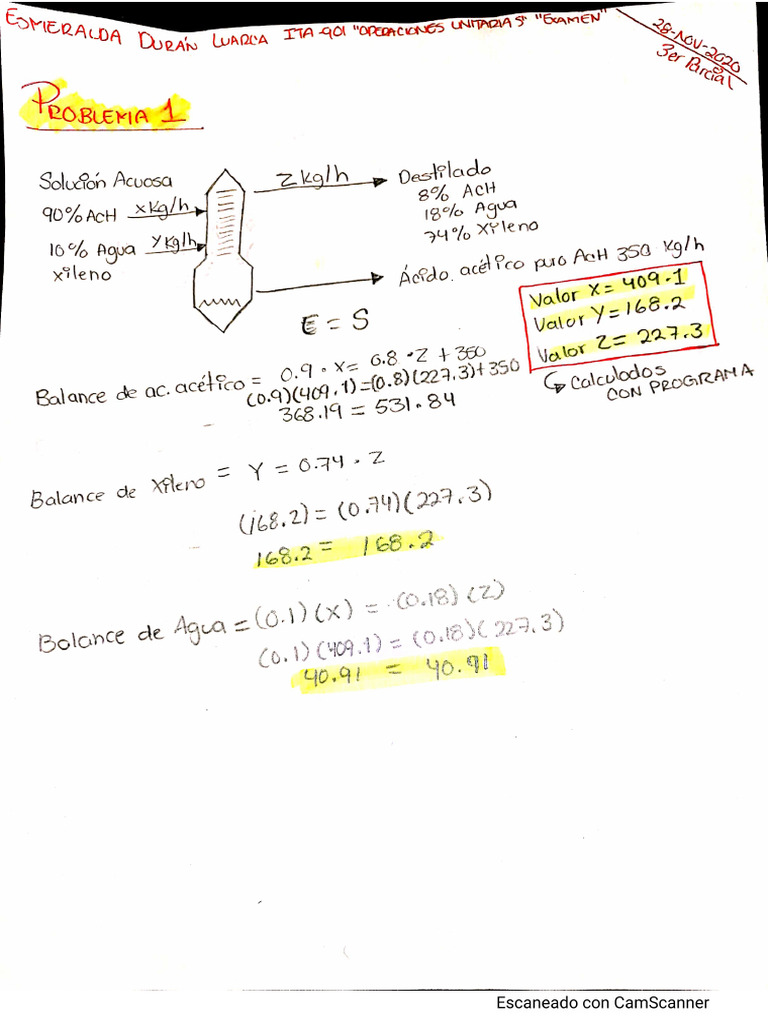 ESMERALDA DURÁN LUARCA ITA-901 "OPERACIONES UNITARIAS" "EXAMEN"
28-NOV-2020
3er Parcial
PROBLEMA 1
Solución Acuosa
90% AcH x kg/h
10% Agua Y kg/h
xileno
Z kg/h
Destilado
8% AcH
18% Agua
74% Xileno
Ácido acético puro AcH 350 kg/h
E = S
Valor X = 409.1
Valor Y = 168.2
Valor Z = 227.3
Calculados
CON PROGRAMA
Balance de ac. acético = 0.9 · x = 0.8 · Z + 350
(0.9)(409.1) = (0.8)(227.3) + 350
368.19 = 531.84
Balance de Xileno = Y = 0.74 · Z
(168.2) = (0.74)(227.3)
168.2 = 168.2
Balance de Agua = (0.1)(X) = (0.18)(Z)
(0.1)(409.1) = (0.18)(227.3)
40.91 = 40.91
Escaneado con CamScanner